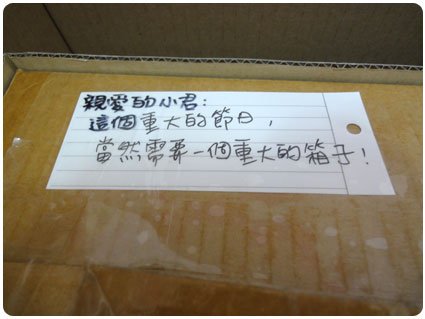 親愛的小君:
這個重大的節日,
當然需要一個重大的箱子!